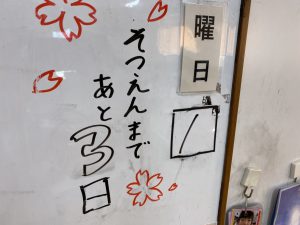 曜日
そつえんまで
あと3日